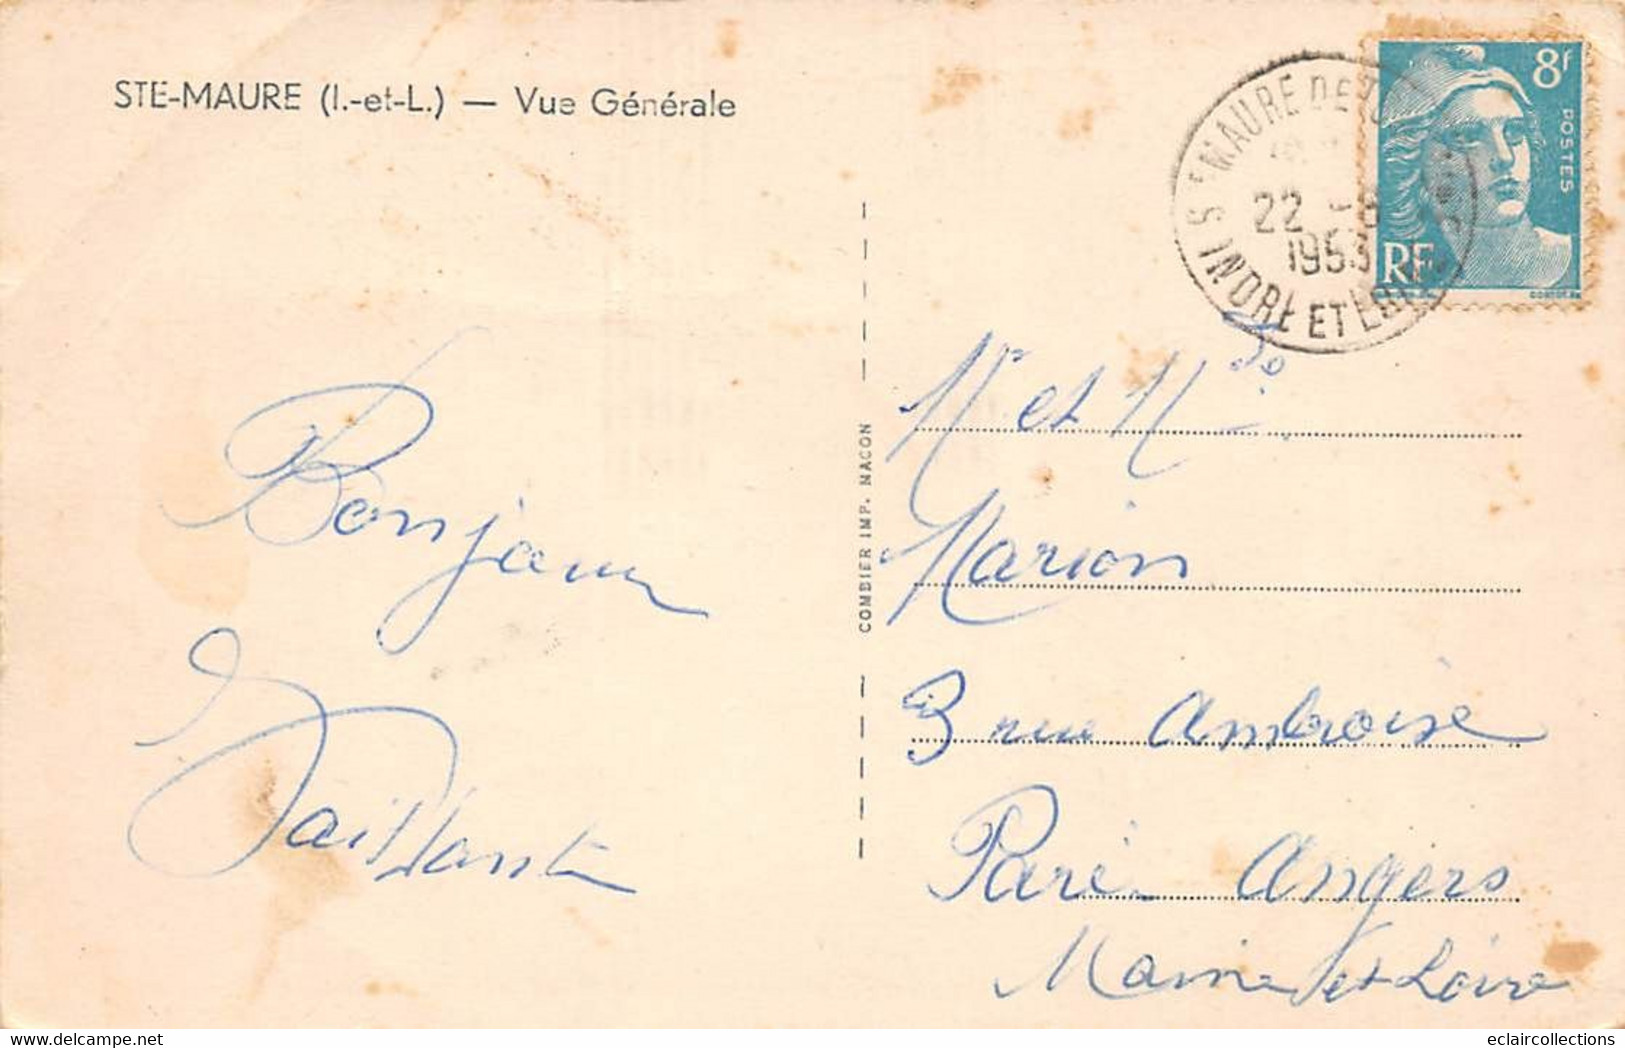 STE-MAURE (I.-et-L.) — Vue Générale
8f
POSTES
RF
STE MAURE DE
22 -8
1953
INDRE ET LOIRE
COMBIER IMP. MACON
Bonjour
Vaillant
Mr et Mme
Marion
3 rue Ambroise
Paré Angers
Maine et Loire
eclaircollections